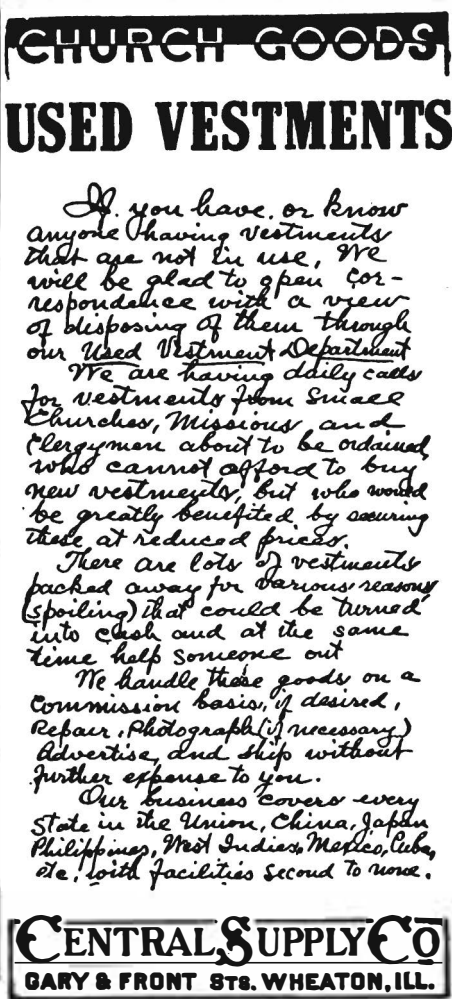 CHURCH GOODS
USED VESTMENTS
If. you have, or know
anyone having vestments
that are not in use, We
will be glad to open Cor-
respondence with a view
of disposing of them through
our Used Vestment Department
We are having daily calls
for vestments from Small
Churches, Missions, and
Clergymen about to be ordained,
who cannot afford to buy
new vestments, but who would
be greatly benefited by securing
these at reduced prices.
There are lots of vestments
packed away for various reasons
(spoiling) that could be turned
into cash and at the same
time help someone out
We handle these goods on a
Commission basis, if desired,
Repair, Photograph (if necessary)
Advertise, and ship without
further expense to you.
Our business covers every
State in the Union, China, Japan
Philippines, West Indies, Mexico, Cuba,
etc, with facilities second to none.
CENTRAL SUPPLY CO
GARY & FRONT STS. WHEATON, ILL.